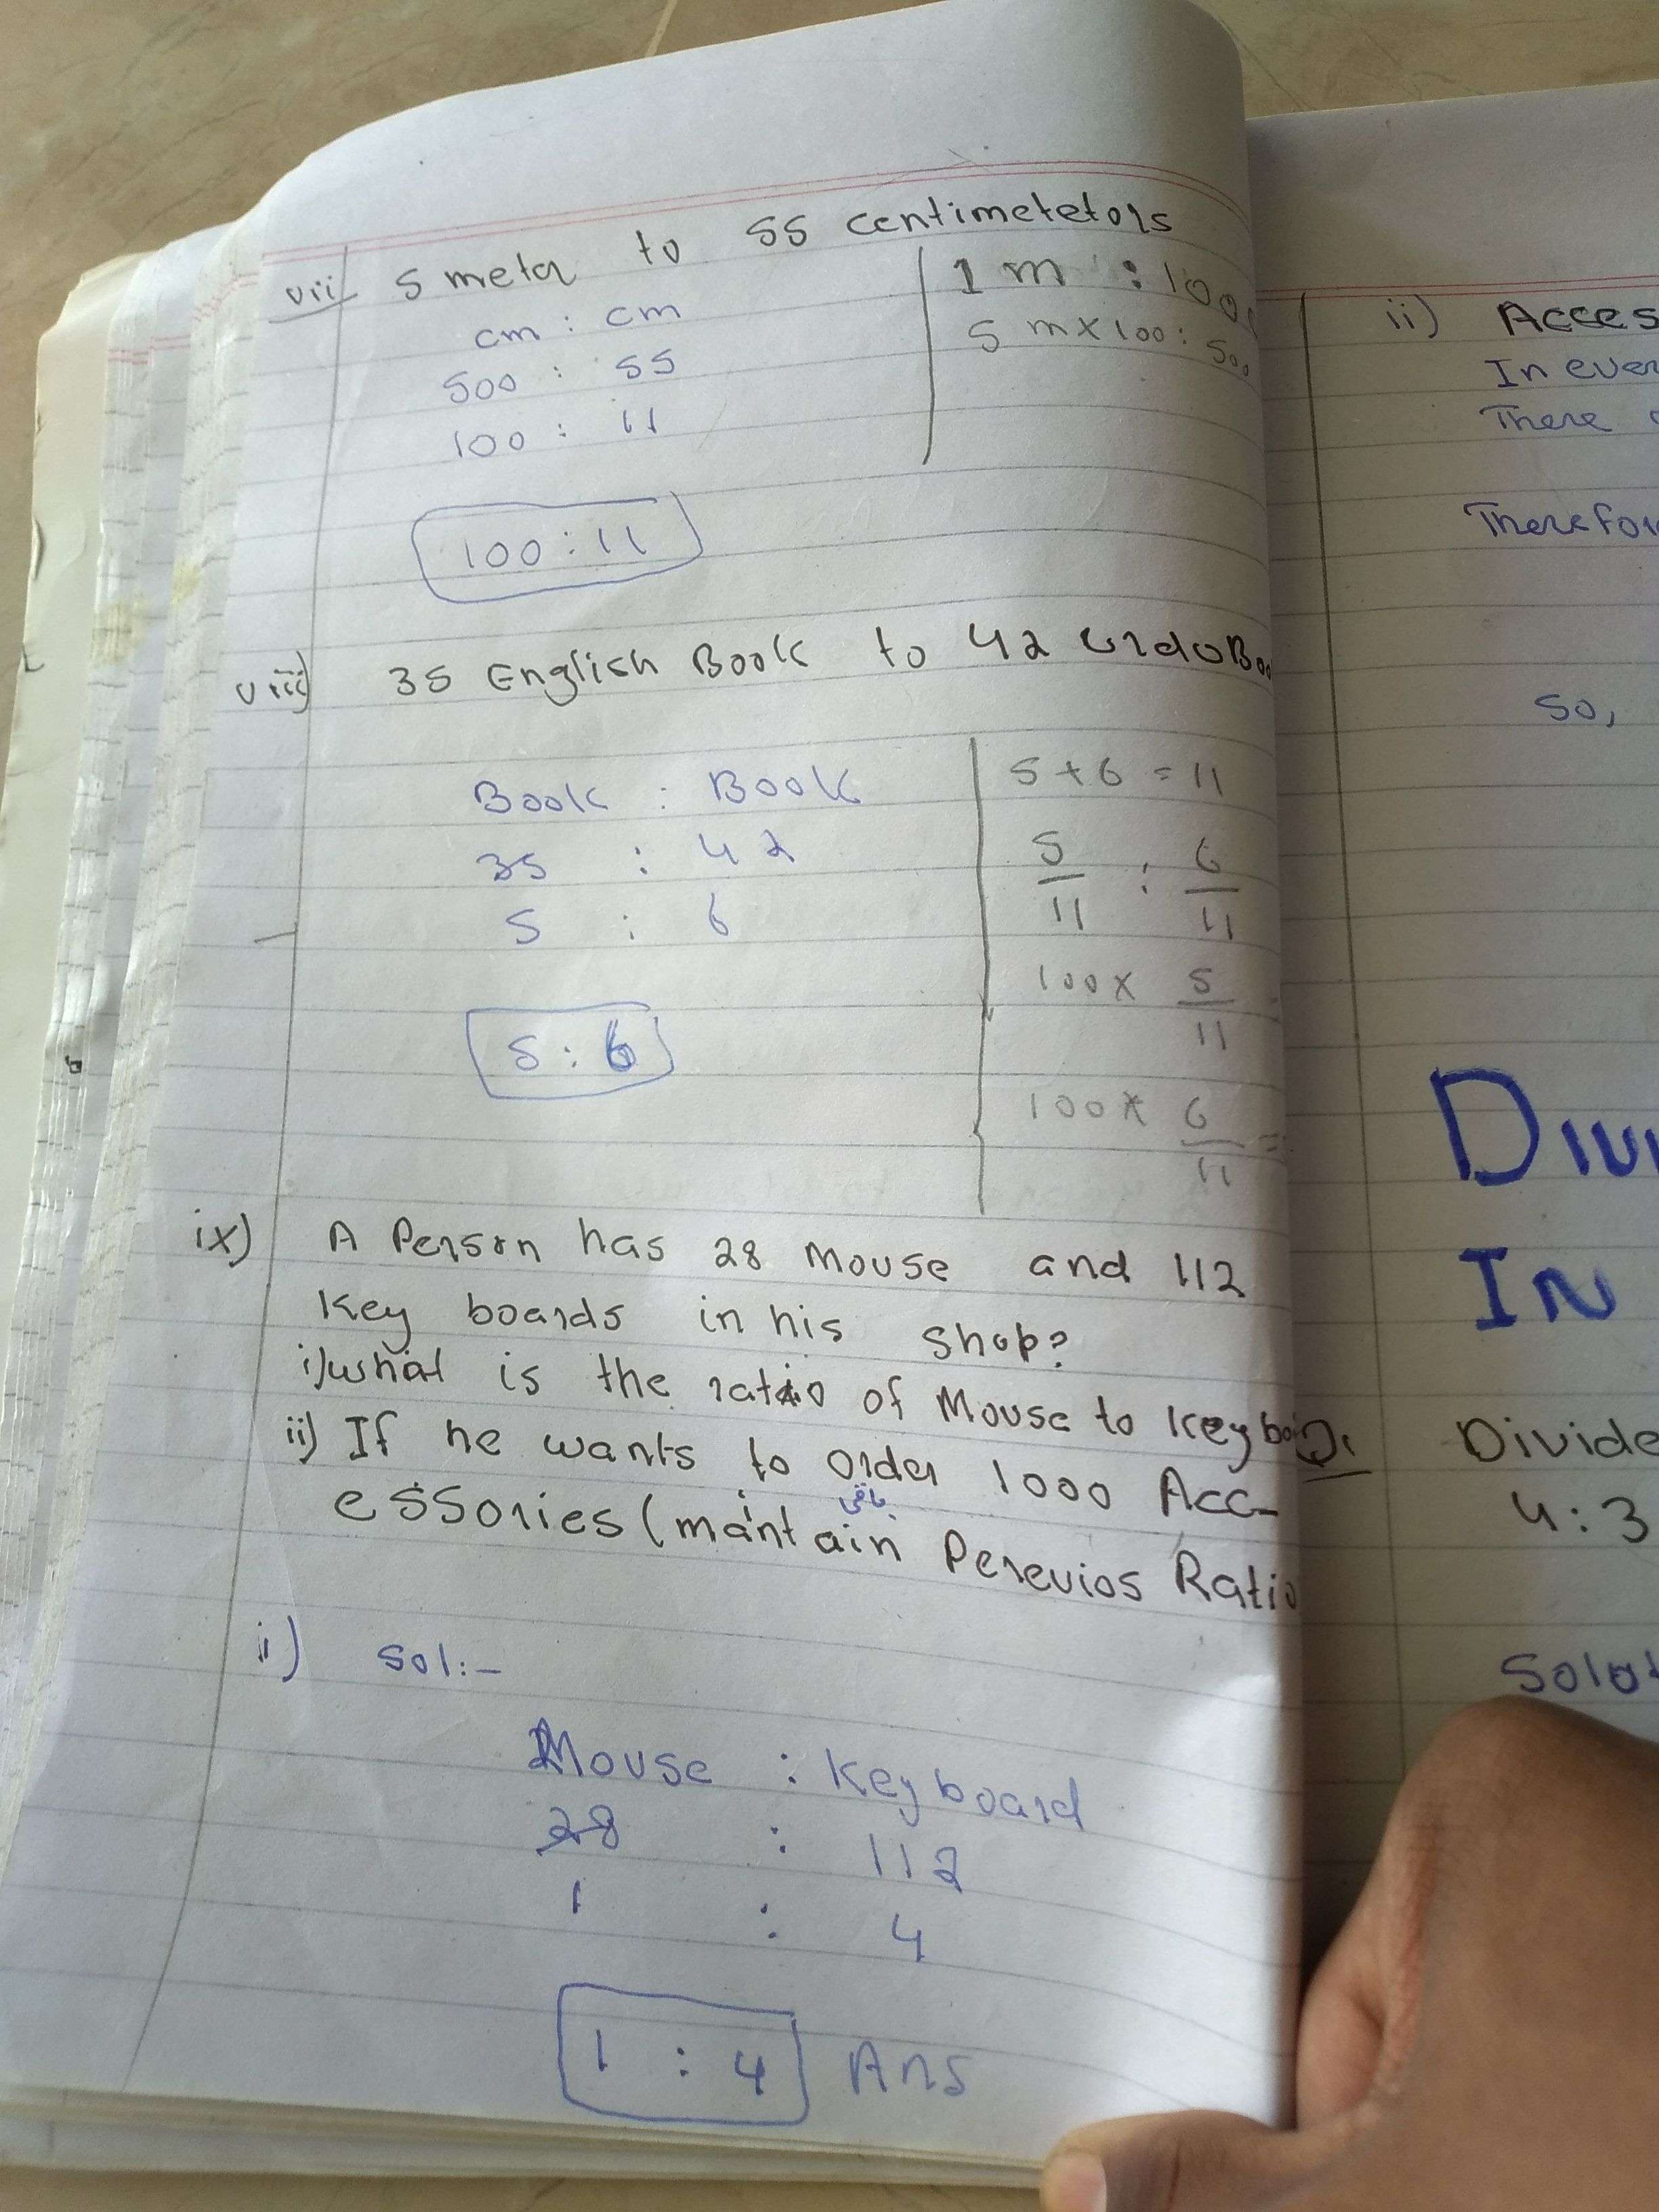 vii 5 meter to 55 centimetetors
cm : cm
500 : 55
100 : 11
100 : 11
1 m : 100
5 m x 100 : 500
viii) 35 English Book to 42 Urdu Boo
Book : Book
35 : 42
5 : 6
5 : 6
5 + 6 = 11
5/11 : 6/11
100 x 5/11 =
100 x 6/11 =
ix) A Person has 28 Mouse and 112
Key boards in his shop?
i) what is the ratio of Mouse to Keyboa
ii) If he wants to order 1000 Acc-
باقی
essories (mantain Perevios Ratio
i) Sol:-
Mouse : Keyboard
28 : 112
1 : 4
1 : 4 Ans
ii) Acces
In ever
There
Therefor
So,
DIVI
IN
Q1 Divide
4 : 3
Solut